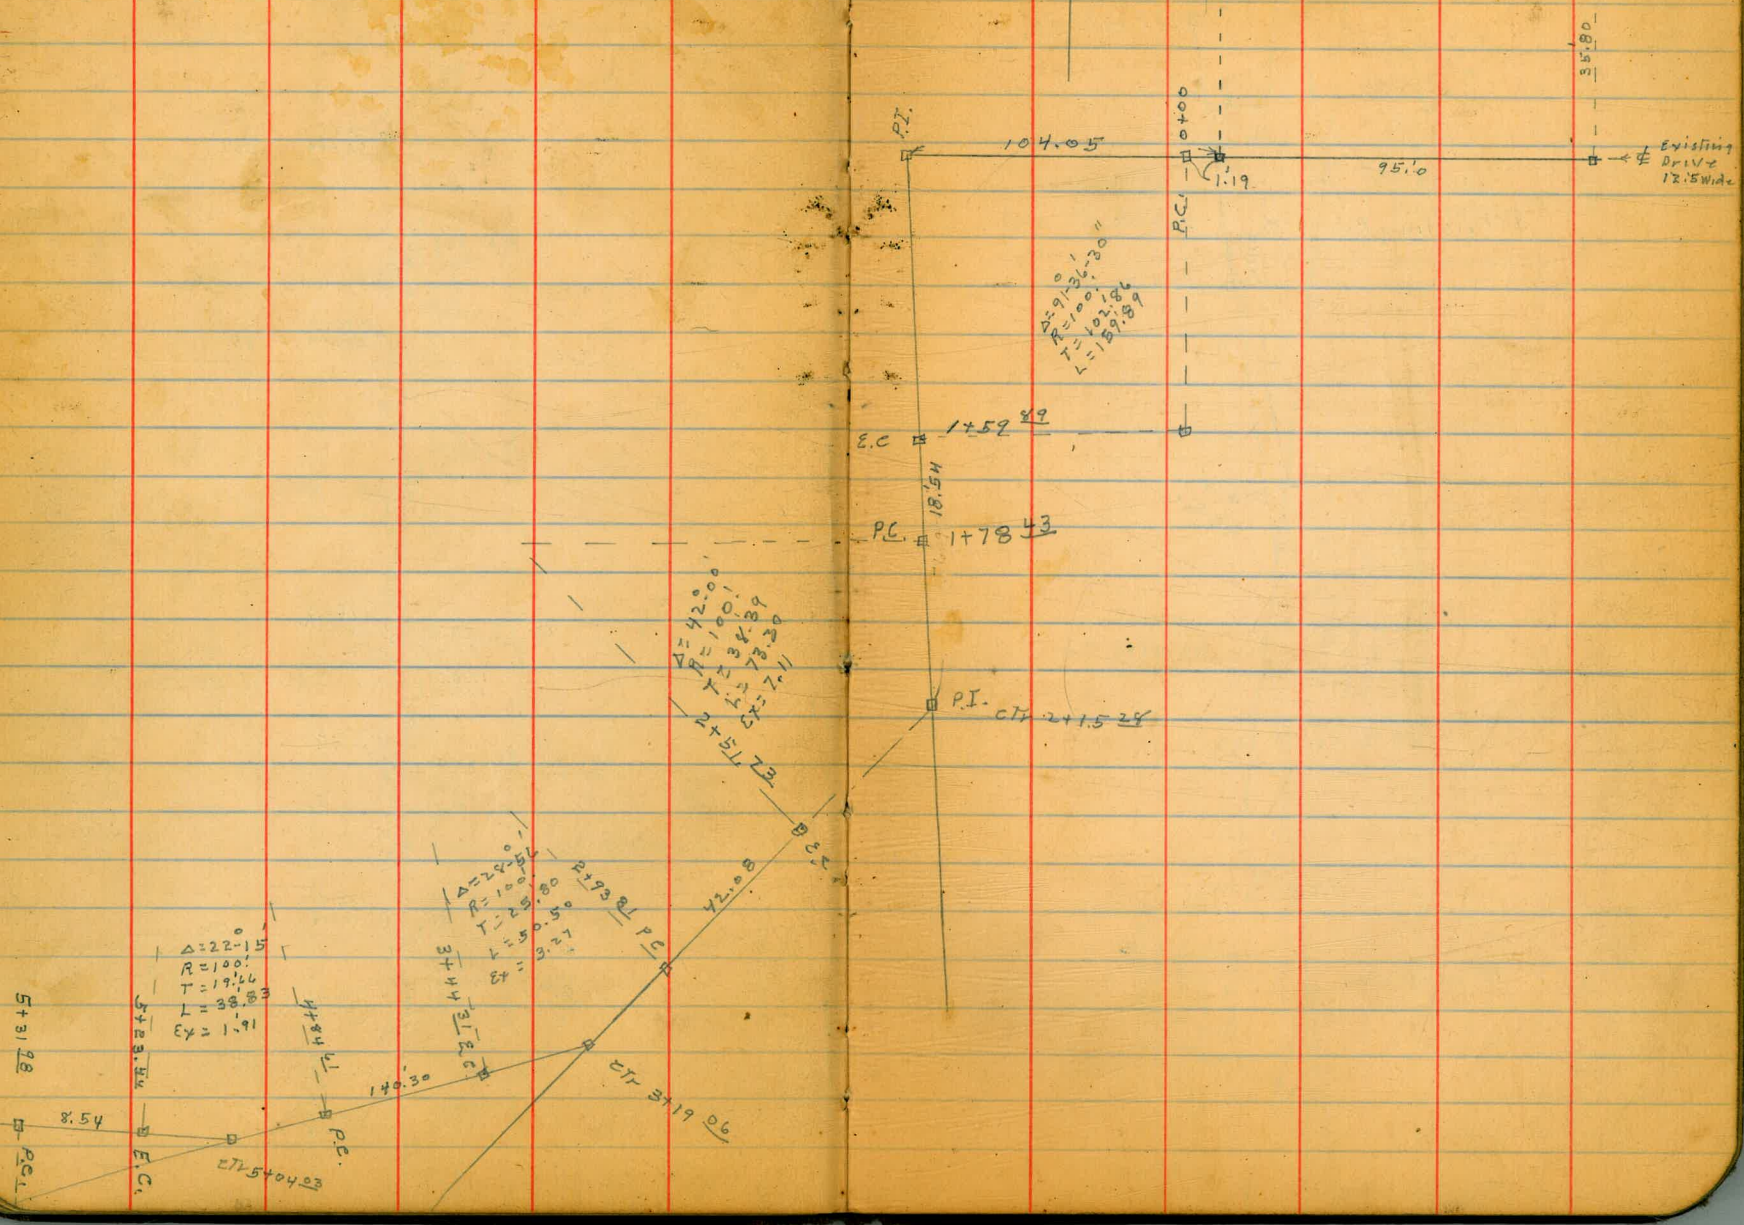 35.80
P.I.
104.05
0+00
P.C.
1.19
95.0
℄ Existing
Drive
12.5 Wide
Δ=91°-36'-30"
R=100.'
T=102.'86
L=159.'89
E.C
1+59 89
18.'54
P.C.
1+78 43
Δ=42°00'
R=100.'
T=38.39
L=73.30
Ex=7.11
P.I.
CTr 2+15 28
2+51 73
E.C.
42.08
2+93 81 P.C.
R=100.'
T=25.80
L=50.50
Ex=3.27
3+44 31 E.C.
CTr 3+19 06
140.'30
Δ=22°-15'
R=100.'
T=19.'66
L=38.'83
Ex=1.'91
4+84 61
P.C.
CTr 5+04 03
5+23.44
E.C.
8.54
5+31 98
P.C.